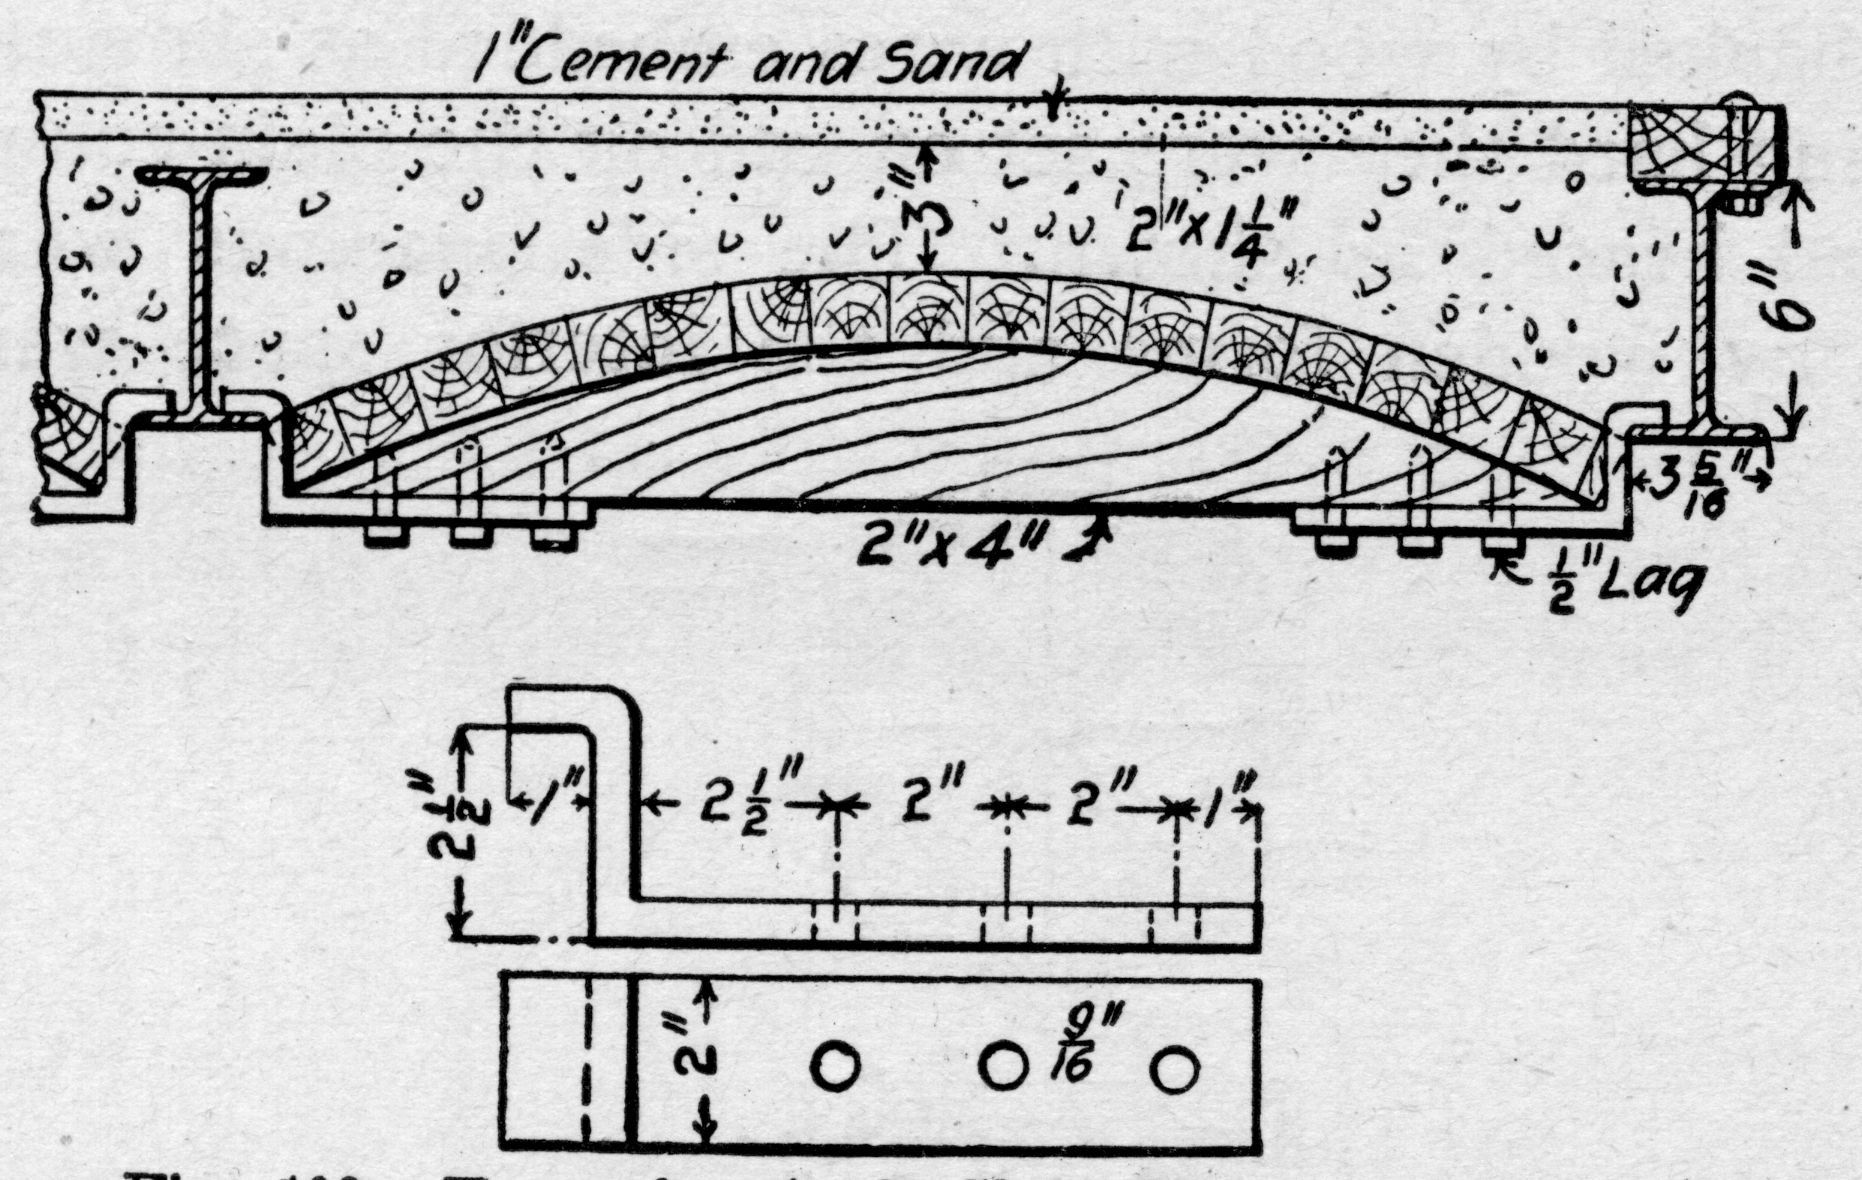 1" Cement and Sand
3"
2" x 1 1/4"
6"
3 5/16"
2" x 4"
1/2" Lag
2 1/2"
1"
2 1/2"
2"
2"
1"
2"
9/16"